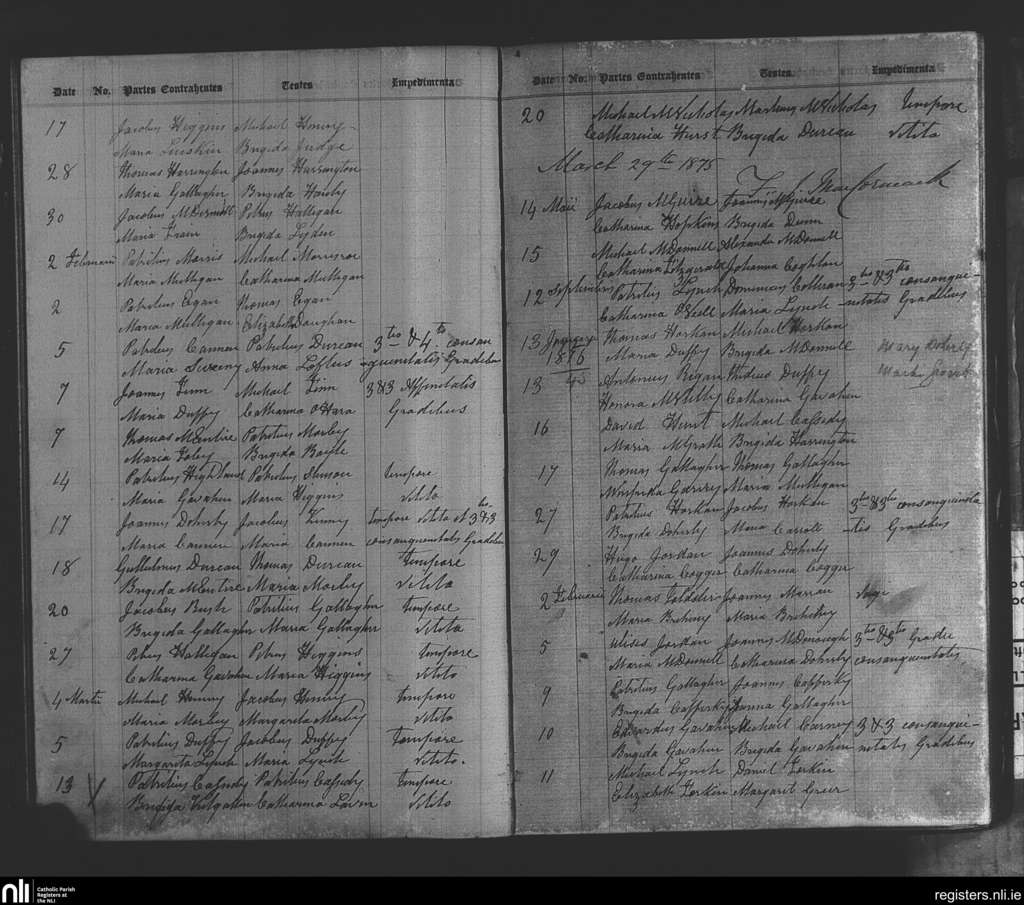 Date No. Partes Contrahentes Testes Impedimenta
17 Jacobus Higgins Michael Henry
Maria Brigida Judge
28 Thomas Harrington Joannes Harrington
Maria Gallagher Brigida
30 Jacobus McDermott Petrus Halligan
Maria Brigida Lyden
2 Februarii Patritius Morris Michael Morrison
Maria Mulligan Catharina Mulligan
2 Patritius Egan Thomas Egan
Maria Mulligan Elizabeth
5 Patritius Cannon Patritius Durcan 3tio & 4to consan
Maria Anna Loftus guinitatis Gradibus
7 Joannes Finn Michael Finn 3 & 3 Affinitatis
Maria Duffy Catharina O'Hara Gradibus
7 Thomas McEntire Patritius Morley
Maria Foley Brigida Boyle
14 Patritius Highland Patritius tempore
Maria Gavahan Maria Higgins vetito
17 Joannes Doherty Jacobus Kenny tempore vetito et 3 & 3
Maria Cannon Maria Cannon consanguinitatis Gradibus
18 Gullielmus Durcan Thomas Durcan tempore
Brigida McEntire Maria Morley vetito
20 Jacobus Rush Patritius Gallagher tempore
Brigida Gallagher Maria Gallagher vetito
27 Petrus Halligan Petrus Higgins tempore
Catharina Gavahan Maria Higgins vetito
4 Martii Michael Henry Jacobus Henry tempore
Maria Morley Margarita Morley vetito
5 Patritius Duffy Jacobus Duffy tempore
Margarita Lynch Maria Lynch vetito.
13 Patritius Cassidy Patritius Cassidy tempore
Brigida Catharina Lavin vetito
Date No. Partes Contrahentes Testes. Impedimenta
20 Michael McNicholas McNicholas tempore
Catharina Hurst Brigida Durcan vetito
March 29th 1875
MacCormack
14 Maii Jacobus McGuire McGuire
Catharina Hopkins Brigida Dunn
15 Michael McDonnell Alexander McDonnell
Catharina Fitzgerald Johanna Coghlan
12 Septembris Patritius Lynch Dominicus 3tio & 3tio consangui-
Catharina O'Neill Maria Lynch -nitatis Gradibus
13 January Thomas Horkan Michael Horkan
1876 Maria Duffy Brigida McDonnell Mary Doherty
13 Antonius Regan Duffy Mark
Honora Catharina Gavahan
16 David Hurst Michael Cassidy
Maria McGrath Brigida Harrington
17 Thomas Gallagher Thomas Gallagher
Maria Mulligan
27 Patritius Horkan Jacobus Horkan 3tio & 3tio consanguinita
Brigida Doherty Maria Carroll -tis Gradibus
29 Hugo Jordan Joannes Doherty
Catharina Coggur Catharina Coggur
2 Februarii Thomas Joannes
Maria Maria
5 Jordan Joannes McDonough 3tio & 3tio Gradu
Maria McDonnell Catharina Doherty consanguinitatis
9 Patritius Gallagher Joannes
Brigida Gallagher
10 Edwardus Gavahan Michael Carney 3 & 3 consangui-
Brigida Gavahan Brigida Gavahan nitatis Gradibus
11 Michael Lynch Daniel
Elizabeth Margaret Greer
nli Catholic Parish
Registers at
the NLI
registers.nli.ie